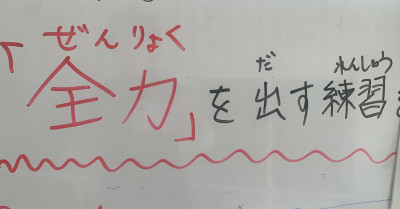 ぜんりょく だ れんしゅう
「全力」を出す練習